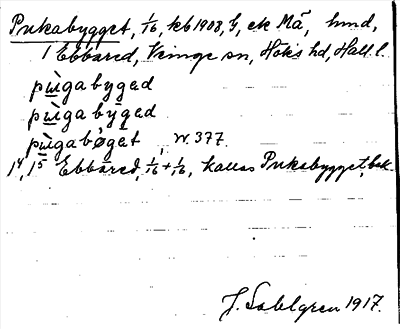 Pukabygget, 1/16, kb 1908, G, ek Mā, hmd,
1 Ebbared, Veinge sn, Höks hd, Hall l.
pùgabyged
pùgabyged
pùgabøget, W. 377.
1⁴, 1⁵ Ebbared, 1/16 + 1/16, kallas Pukabygget, bek.
J. Sahlgren 1917.